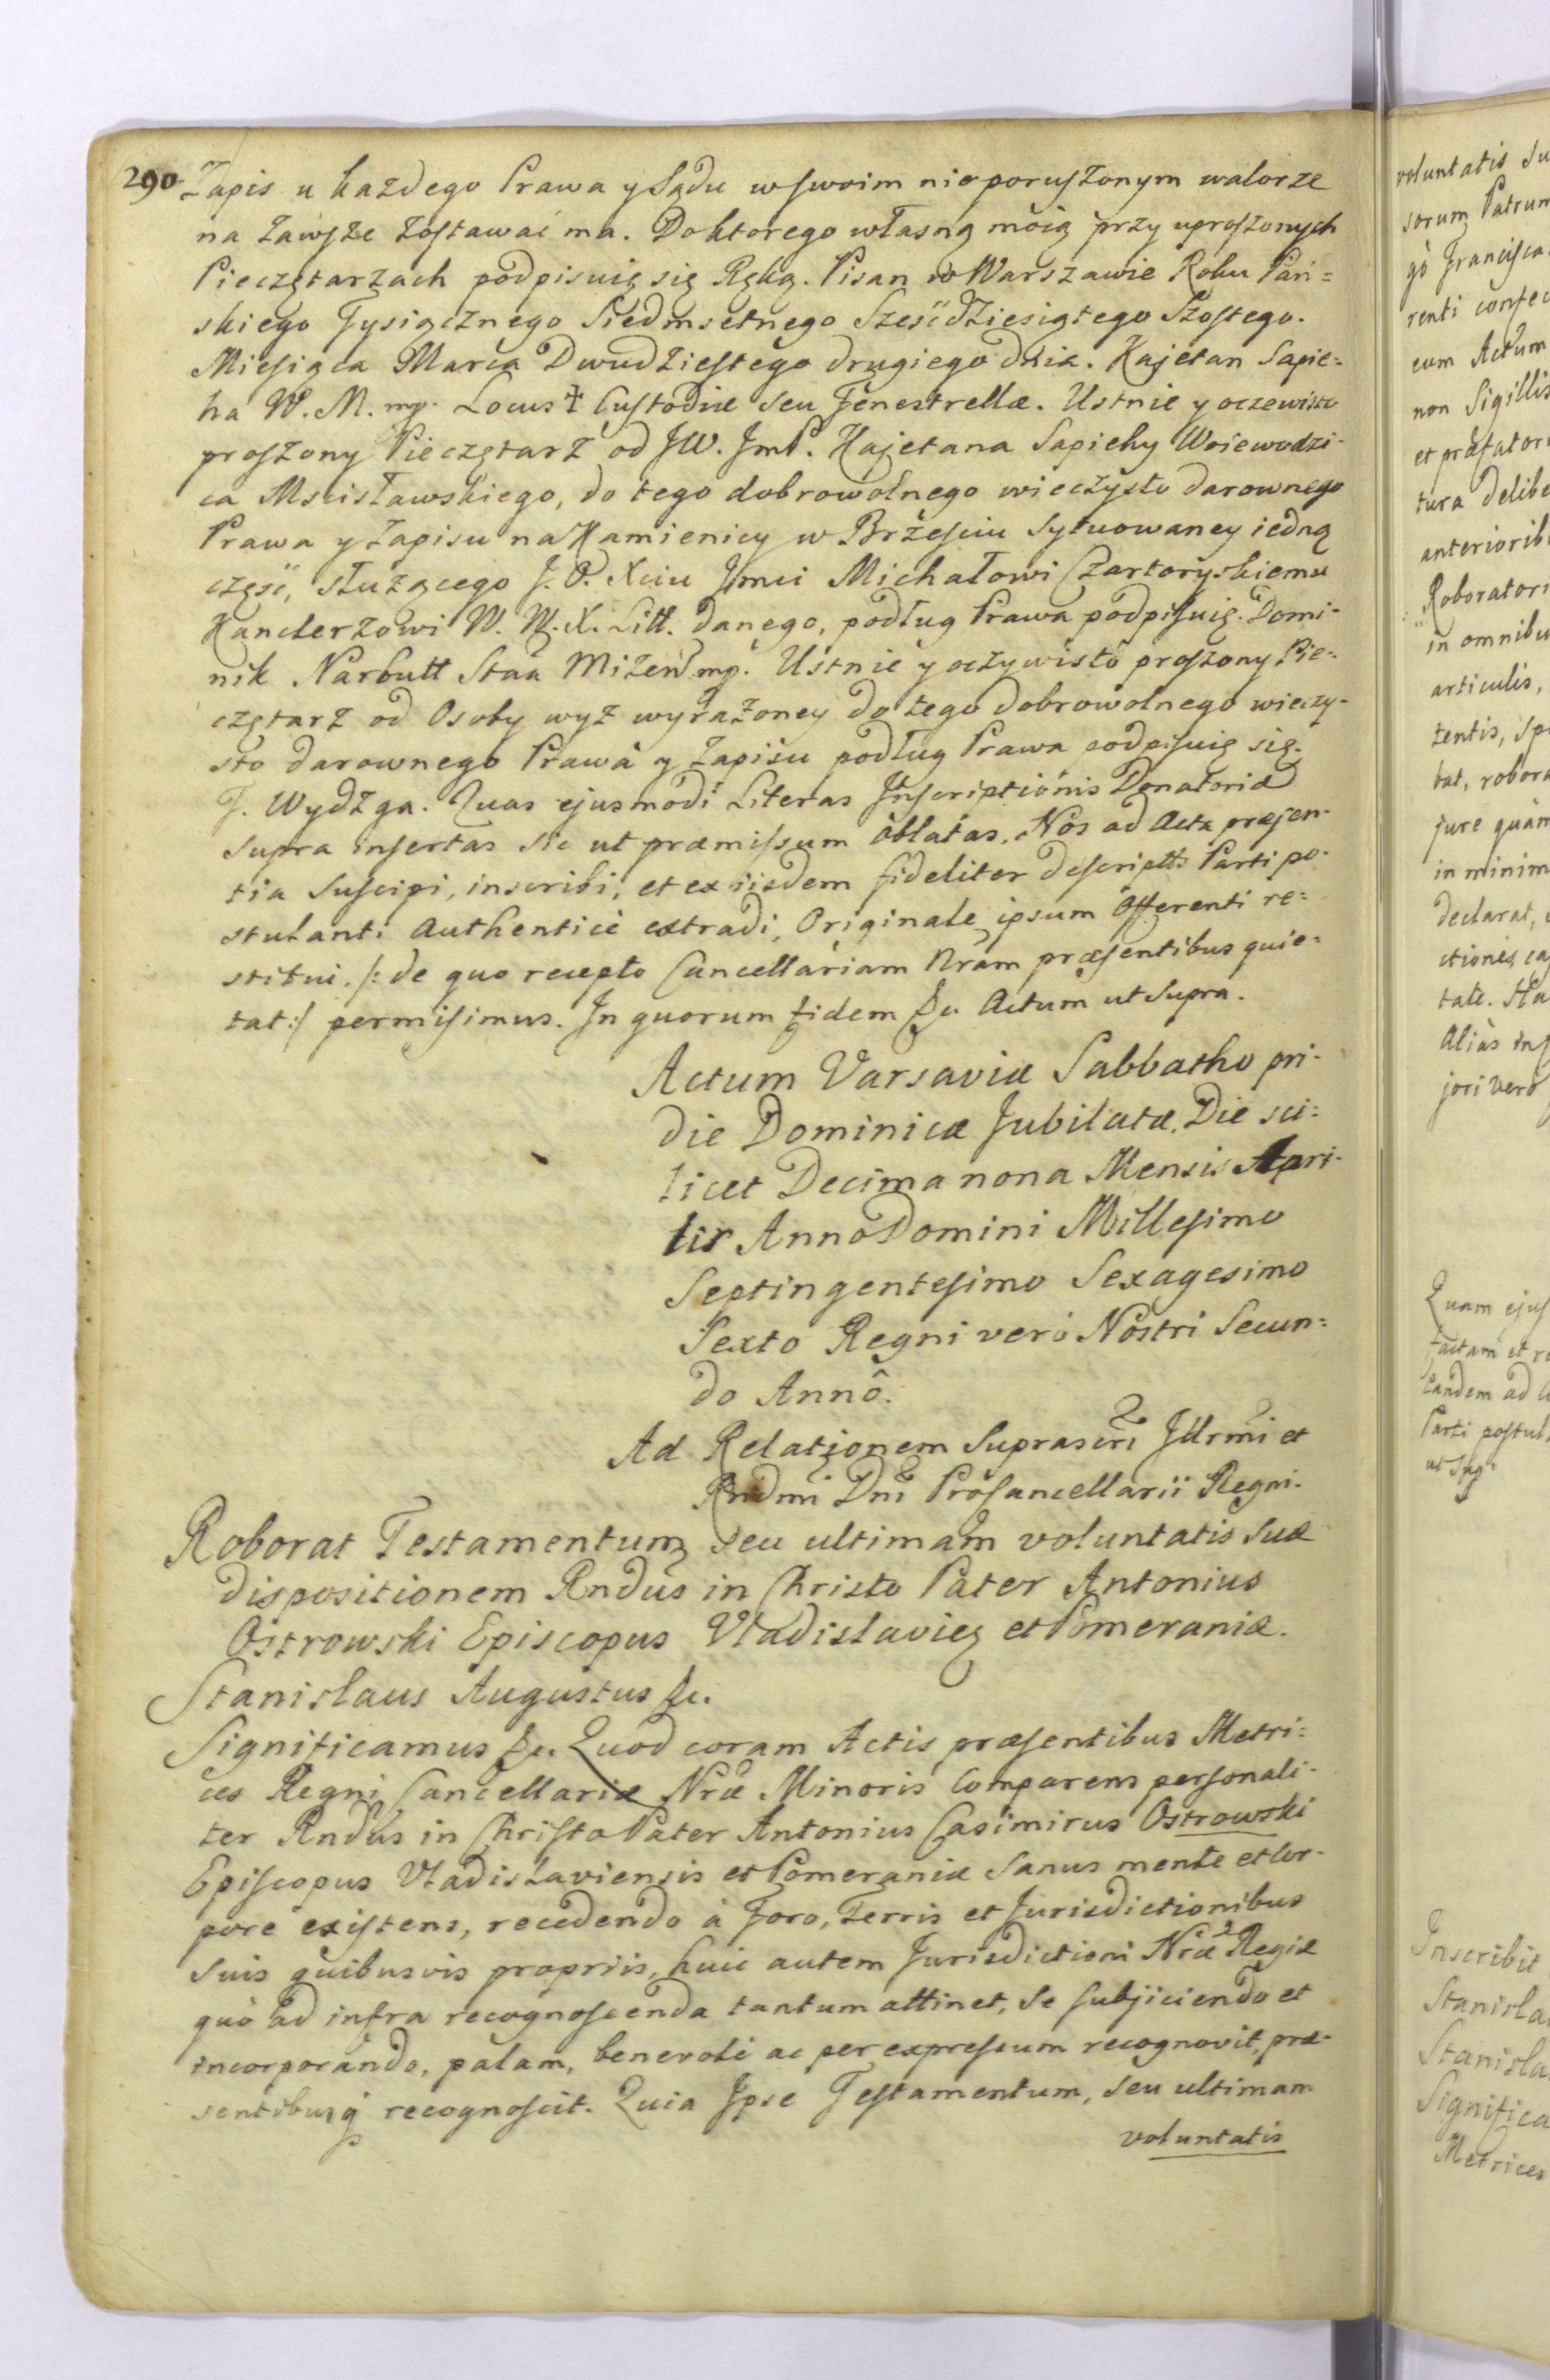 290 Zapis u każdego Prawa y Sądu w swoim nieporuszonym walorze
na zawsze zostawać ma. Do ktorego własną moią przy uproszonych
Pieczętarzach podpisuię się Ręką. Pisan w Warszawie Roku Pań=
skiego Tysiącznego Siedmsetnego Sześćdziesiątego Szostego.
Miesiąca Marca Dwudziestego drugiego dnia. Kajetan Sapie=
ha W. M. mp. Locus ‡ Custodiæ seu Fenestrellæ. Ustnie y oczewisto
proszony Pieczętarz od JW. JmP. Kajetana Sapiehy Woiewodzi-
ca Mscisławskiego, do tego dobrowolnego wieczysto darownego
Prawa y Zapisu na Kamienicy w Brześciu Sytuowaney iedną
część, służącego J. O. Xciu Jmci Michałowi Czartoryskiemu
Kanclerzowi W. W. X. Litt. danego, podług Prawa podpisuię. Domi-
nik Narbutt Staa Mizeń mp. Ustnie y oczywisto proszony Pie=
czętarz od Osoby wyż wyrażoney do tego dobrowolnego wieczy-
sto darownego Prawa y Zapisu podług Prawa podpisuię się.
F. Wydzga. Quas ejusmodi Literas Inscriptionis Donatoriæ
supra insertas sic ut præmissum oblatas, Nos ad Acta præsen-
tia suscipi, inscribi, et ex iisdem fideliter descriptas Parti po-
stulanti Authenticè extradi, Originale ipsum Offerenti re=
stitui. /: de quo recepto Cancellariam Nram præsentibus quie=
tat :/ permisimus. In quorum fidem &c. Actum ut supra.
Actum Varsaviæ Sabbatho pri-
die Dominicæ Jubilatæ, Die sci=
licet Decima nona Mensis Apri-
lis Anno Domini Millesimo
Septingentesimo Sexagesimo
Sexto Regni verò Nostri Secun=
do Annô.
Ad Relationem Suprascri Jllrmi et
Rndmi Dni Procancellarii Regni.
Roborat Testamentum seu ultimam voluntatis suæ
dispositionem Rndus in Christo Pater Antonius
Ostrowski Episcopus Vladislavien et Pomeraniæ.
Stanislaus Augustus &c.
Significamus &c. Quod coram Actis præsentibus Metri=
ces Regni Cancellariæ Nræ Minoris Comparens personali-
ter Rndus in Christo Pater Antonius Casimirus Ostrowski
Episcopus Vladislaviensis et Pomeraniæ sanus mente et cor-
pore existens, recedendo à Foro, Terris et Jurisdictionibus
suis quibusvis propriis, huic autem Jurisdictioni Nræ Regiæ
quò ad infra recognoscenda tantum attinet, se subjiciendo et
incorporando, palam, benevolè ac per expressum recognovit, præ-
sentibusq recognoscit. Quia Ipse Testamentum, seu ultimam
voluntatis
voluntatis su
sorum Patrum
renti confec
eum Actum
non Sigillis
et præfator
tura delibe
anteriorib
Roborator
in omnibu
articulis,
tentis, sp
bat, robora
jure quàm
in minim
declarat,
ctiones, ca
tate.
Aliàs
jori verò
Quam ejus
factam et r
eandem ad
Parti postul
ut sup.
Inscribit
Stanisla
Stanisla
Significa
Metrices